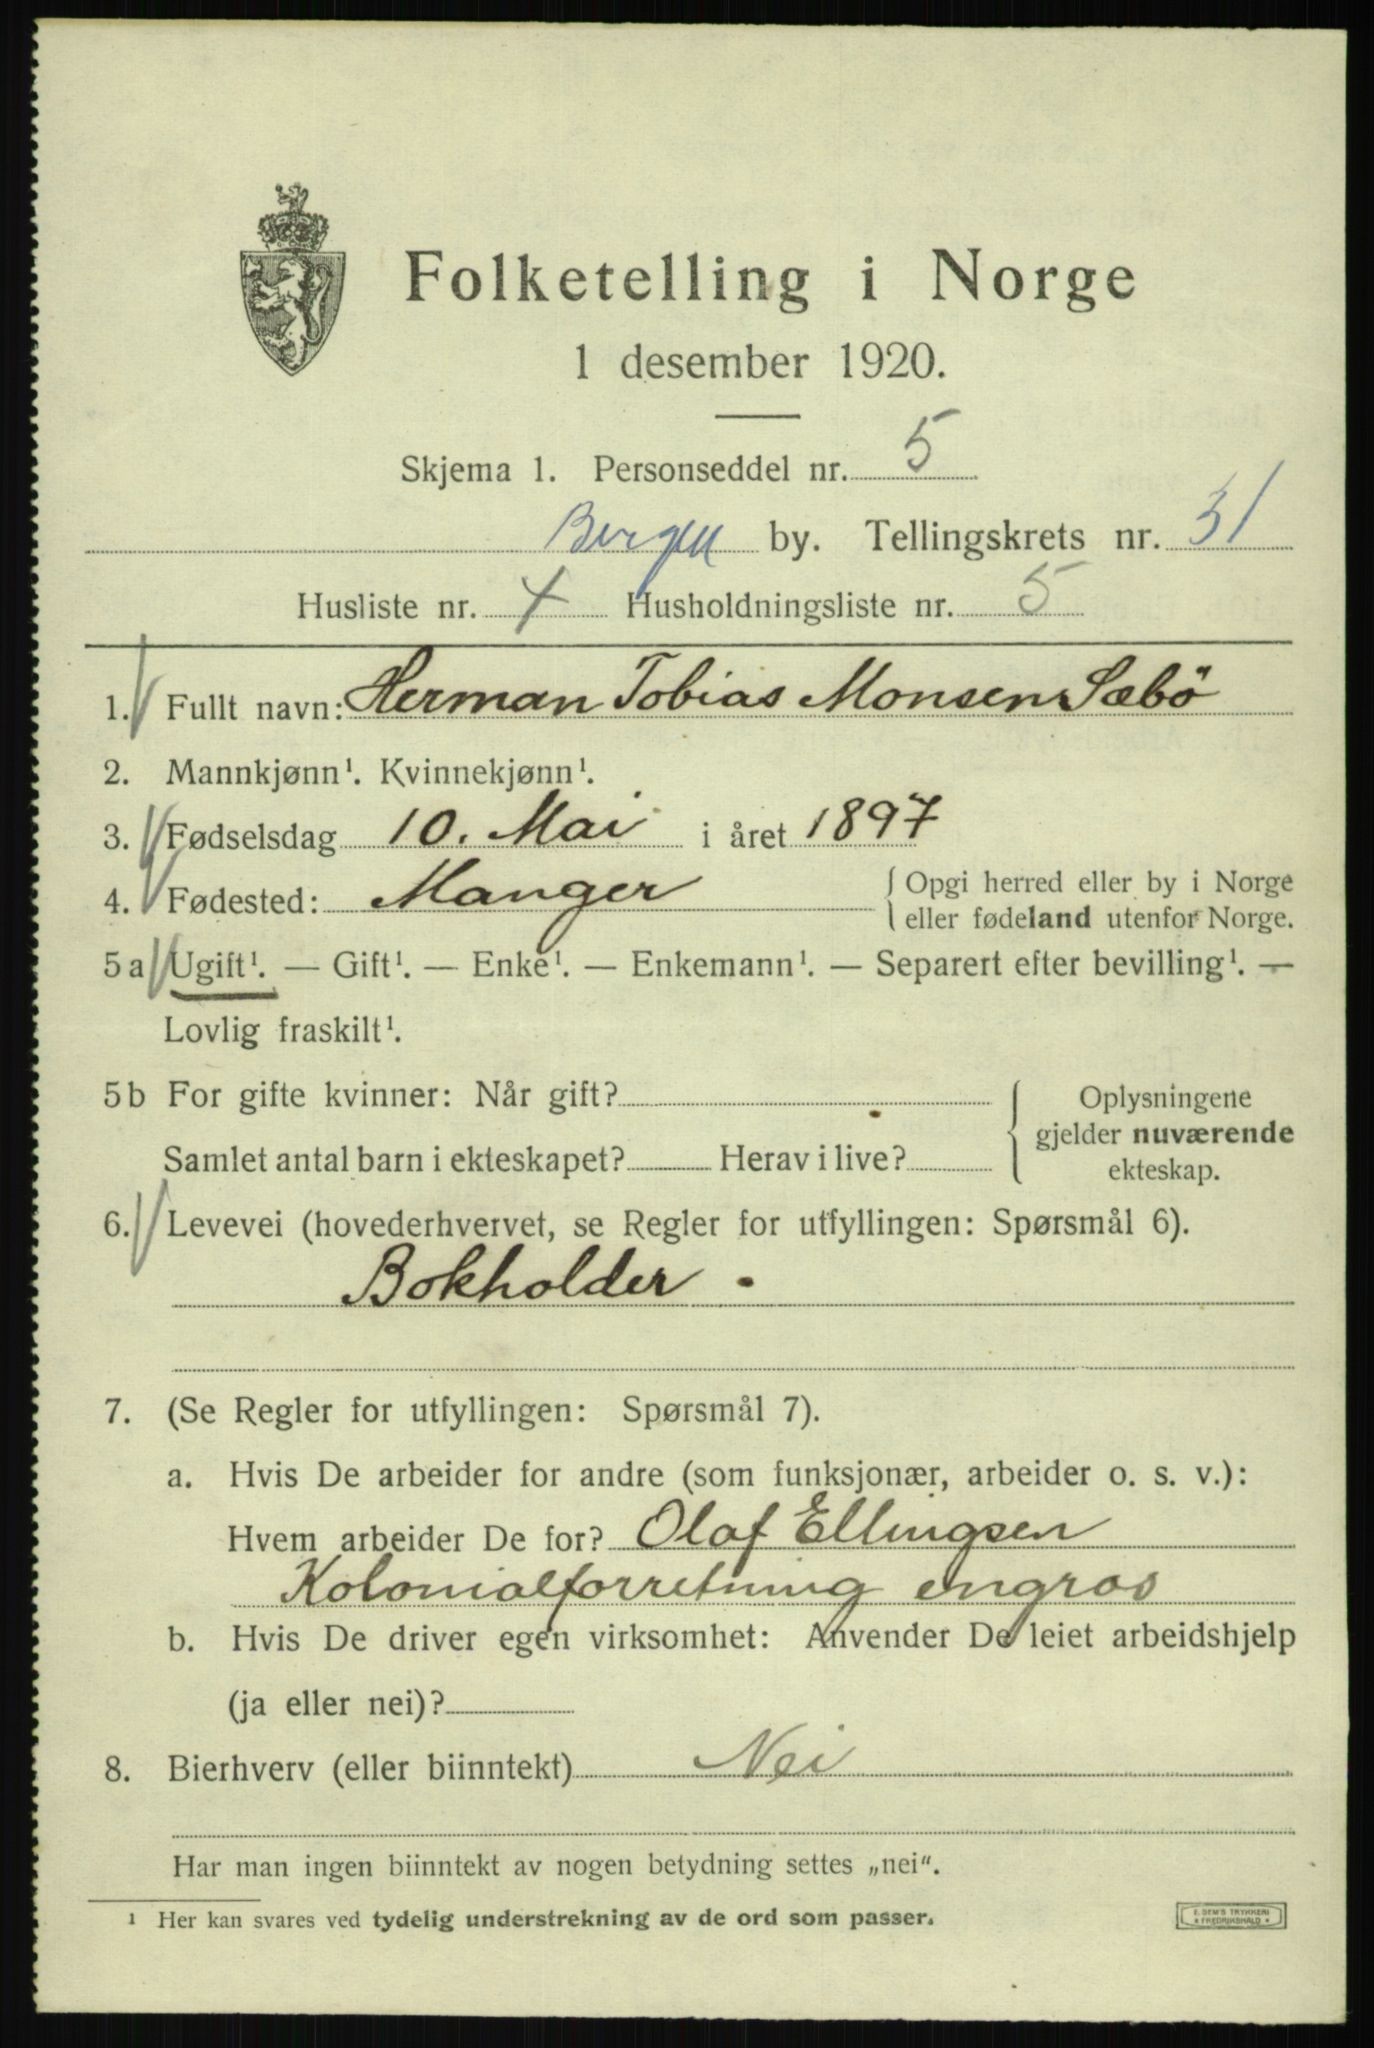 Folketelling i Norge
1 desember 1920.
Skjema 1. Personseddel nr. 5
Bergen by. Tellingskrets nr. 31
Husliste nr. 4 Husholdningsliste nr. 5
1. Fullt navn: Herman Tobias Monsen Sæbö
2. Mannkjønn¹. Kvinnekjønn¹.
3. Fødselsdag 10. Mai i året 1897
4. Fødested: Manger { Opgi herred eller by i Norge
eller fødeland utenfor Norge.
5a Ugift¹. — Gift¹. — Enke¹. — Enkemann¹. — Separert efter bevilling¹. —
Lovlig fraskilt¹.
5b For gifte kvinner: Når gift?
Samlet antal barn i ekteskapet? Herav i live?
{ Oplysningene
gjelder nuværende
ekteskap.
6. Levevei (hovederhvervet, se Regler for utfyllingen: Spørsmål 6).
Bokholder .
7. (Se Regler for utfyllingen: Spørsmål 7).
a. Hvis De arbeider for andre (som funksjonær, arbeider o. s. v.):
Hvem arbeider De for? Olaf Ellingsen
Kolonialforretning engros
b. Hvis De driver egen virksomhet: Anvender De leiet arbeidshjelp
(ja eller nei)?
8. Bierhverv (eller biinntekt) Nei
Har man ingen biinntekt av nogen betydning settes „nei“.
¹ Her kan svares ved tydelig understrekning av de ord som passer.
E. SEM'S TRYKKERI
★ FREDRIKSHALD ★